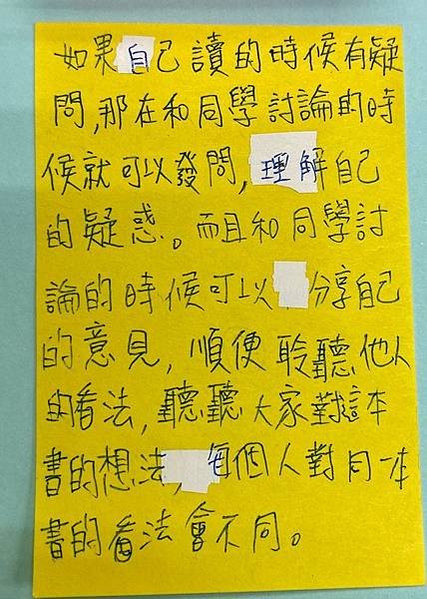 如果自己讀的時候有疑
問,那在和同學討論的時
候就可以發問,理解自己
的疑惑。而且和同學討
論的時候可以分享自己
的意見,順便聆聽他人
的看法,聽聽大家對這本
書的想法,每個人對同一本
書的看法會不同。